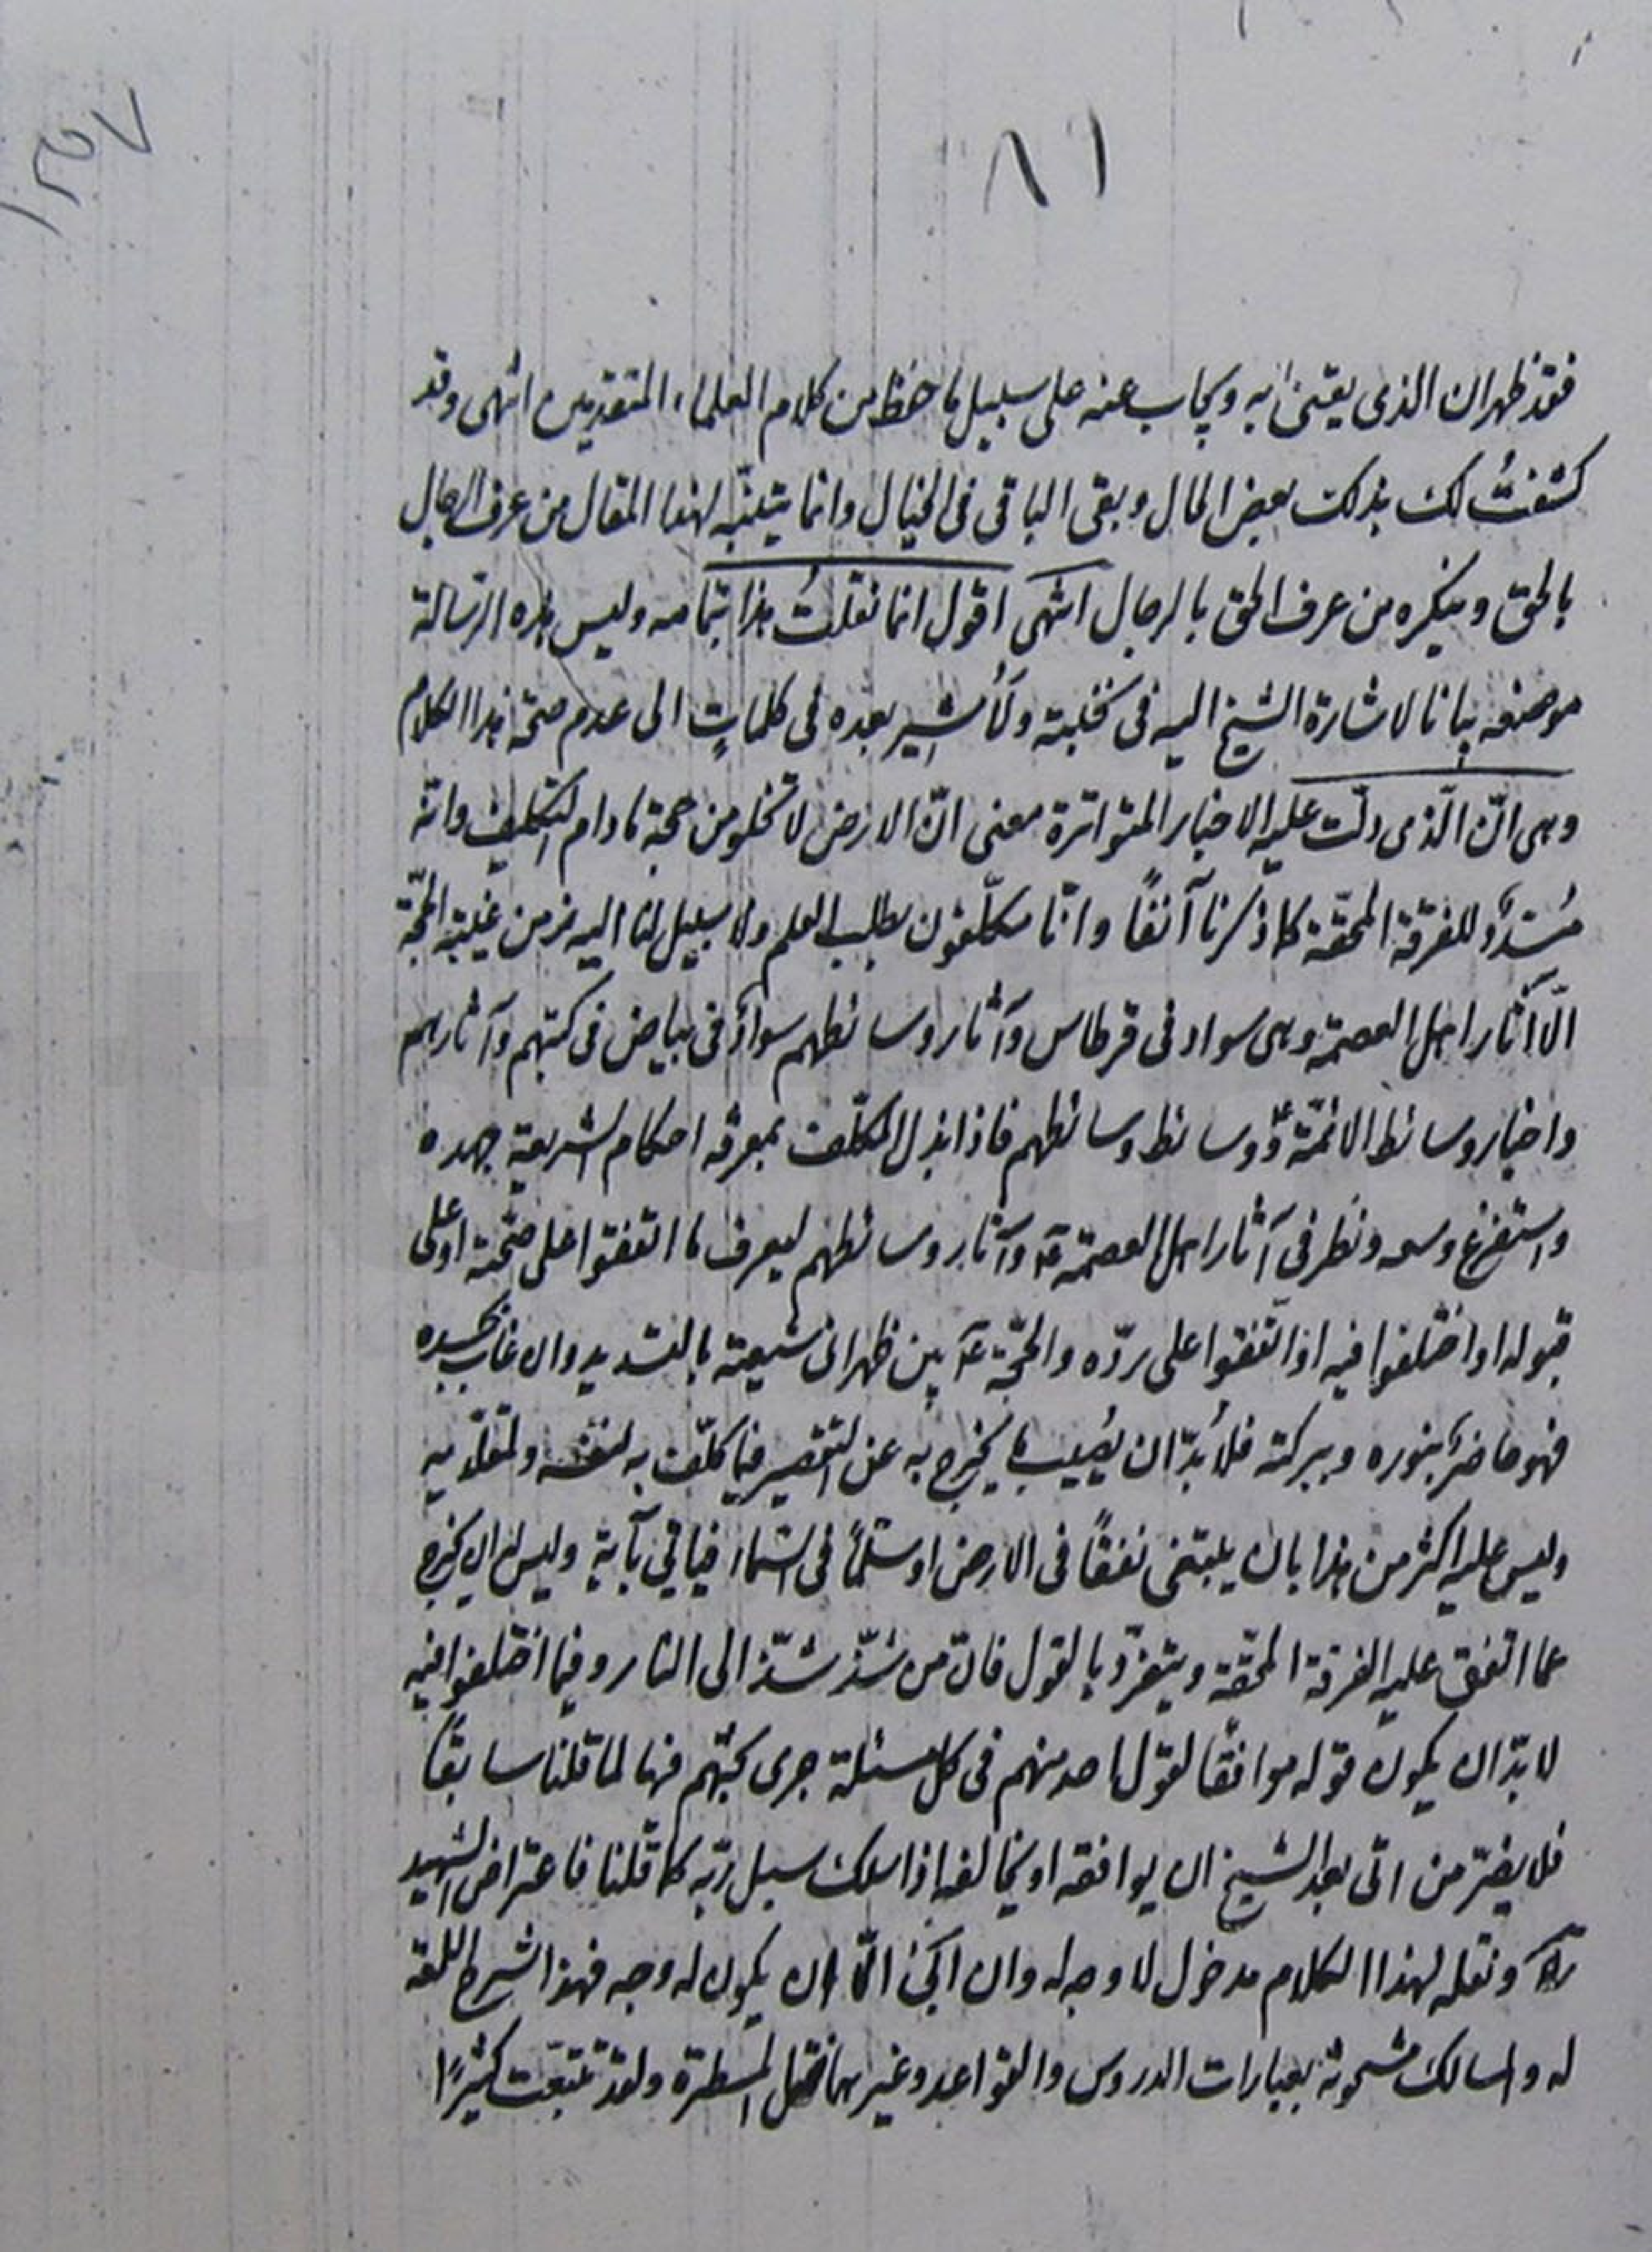 ٨١
فقد ظهر ان الذى يفتى به ويجاب عنه على سبيل ما حفظ من كلام العلماء المتقدمين انتهى وقد
كشفتُ لك بذلك بعض الحال وبقى الباقى فى الخيال وانما يتنبّه لهذا المقال من عرف الرجال
بالحق وينكره من عرف الحق بالرجال انتهى اقول انما نقلتُ هذا بتمامه وليس هذه الرسالة
موضعه بيانا لاشارة الشيخ اليه فى خطبته ولأشير بعده فى كلماتٍ الى عدم صحة هذا الكلام
وهى انّ الّذى دلّت عليه الاخبار المتواترة معنى انّ الارض لا تخلو من حجة ما دام التكليف وانه
مُسدّدٌ للفرقة المحقّة كما ذكرنا آنفاً وانّا مكلّفون بطلب العلم ولا سبيل لنا اليه زمن غيبة الحجّة
الّا آثار اهل العصمة وهى سواد فى قرطاس وآثار وسائطهم سوادٌ فى بياض فى كتبهم وآثارهم
واخبار وسائط الائمّة ع ووسائط وسائطهم فاذا بذل المكلّف بمعرفة احكام الشريعة جهده
واستفرغ وسعه ونظر فى آثار اهل العصمة ع وآثار وسائطهم ليعرف ما اتفقوا على صحّته او على
قبوله او اختلفوا فيه او اتّفقوا على ردّه والحجّة ع بين ظهرانى شيعته بالتسديد وان غاب بجسده
فهو حاضرٌ بنوره وببركته فلابُدّ ان يُصيب ما يخرج به عن التقصير فيما كلّف به لنفسه ولمقلّديه
وليس عليه اكثر من هذا بان يبتغى نفقاً فى الارض او سلّماً فى السّماء فيأتى بآية وليس له ان يخرج
عما اتفق عليه الفرقة المحقّة ويتفرّد بالقول فانّ من شذّ شذّ الى النار وفيما اختلفوا فيه
لا بدّ ان يكون قوله موافقًا لقول احد منهم فى كل مسئلة جرى بحثهم فيها لما قلنا سابقًا
فلا يضرّ من اتى بعد الشيخ ان يوافقه او يخالفه اذا سلك سبل ربّه كما قلنا فاعتراض الشهيد
ره ونقله لهذا الكلام مدخول لا وجه له وان الّا ان يكون له وجه فهذا شرح اللمعة
له والمسالك مشحونة بعبارات الدروس والقواعد وغيرهما المسطرة ولقد تتبّعت كثيرًا